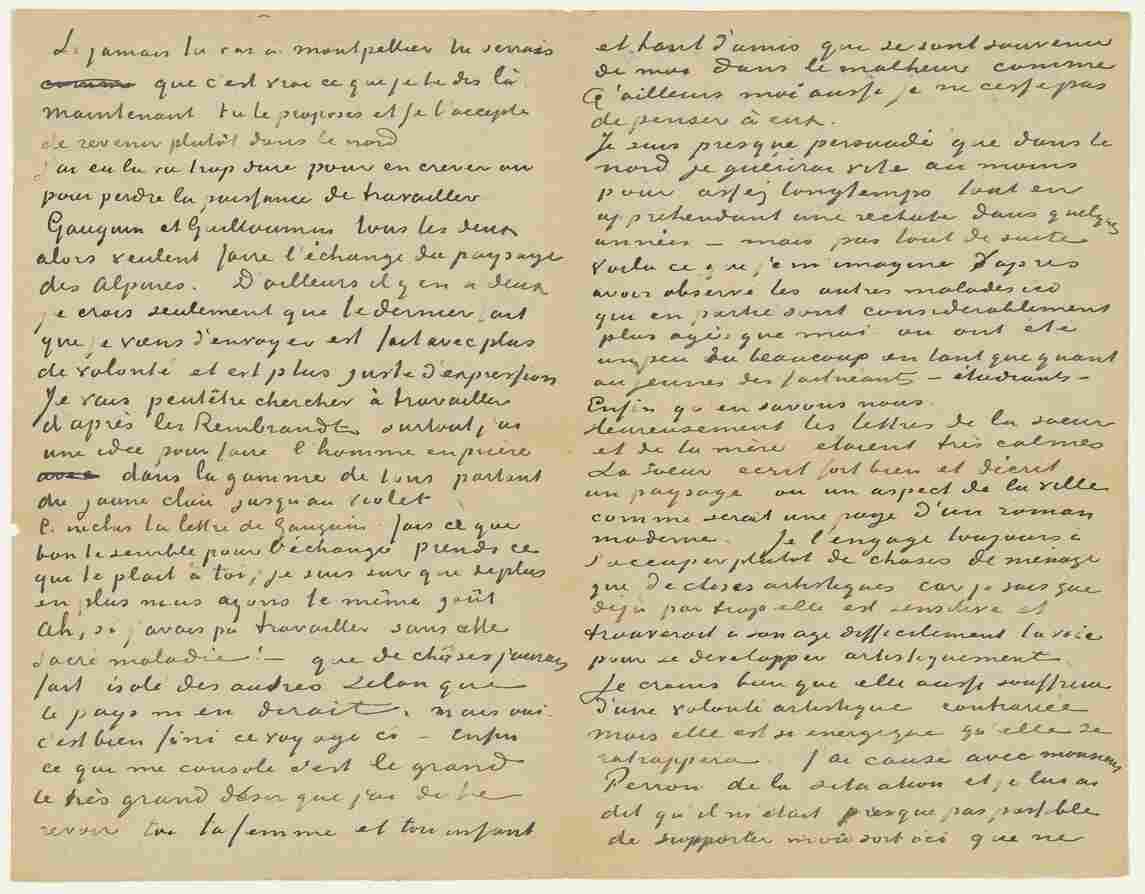 Si jamais tu vas à montpellier tu verrais
comme que c'est vrai ce que je te dis là.
Maintenant tu le proposes et je l'accepte
de revenir plutôt dans le nord
J'ai eu la vie trop dure pour en crever ou
pour perdre la puissance de travailler
Gauguin et Guillaumin tous les deux
alors veulent faire l'échange du paysage
des Alpines. D'ailleurs il y en a deux
je crois seulement que le dernier fait
que je viens d'envoyer est fait avec plus
de volonté et est plus juste d'expression
Je vais peutêtre chercher à travailler
d'après les Rembrandt surtout j'ai
une idée pour faire l'homme en prière
avec dans la gamme de tons partant
du jaune clair jusqu'au violet
C. inclus la lettre de Gauguin. fais ce que
bon te semble pour l'échange prends ce
que te plait à toi, je suis sur que de plus
en plus nous ayons le même goût
Ah, si j'avais pu travailler sans cette
sacré maladie! – que de choses j'aurais
fait isolé des autres selon que
le pays m'en dirait. mais oui –
c'est bien fini ce voyage ci – Enfin
ce que me console c'est le grand
le très grand désir que j'ai de te
revoir toi ta femme et ton enfant
et tant d'amis que se sont souvenu
de moi dans le malheur comme
d'ailleurs moi aussi je ne cesse pas
de penser à eux.
Je suis presque persuadé que dans le
nord je guérirai vite au moins
pour assez longtemps tout en
appréhendant une rechute dans quelques
années – mais pas tout de suite
Voila ce que je m'imagine d'après
avoir observé les autres malades ici
qui en partie sont considérablement
plus agés que moi ou ont été
un peu ou beaucoup en tant que quant
au jeunes des fainéants – étudiants –
Enfin qu'en savons nous.
Heureusement les lettres de la soeur
et de la mère étaient très calmes
La soeur ecrit fort bien et décrit
un paysage ou un aspect de la ville
comme serait une page d'un roman
moderne. Je l'engage toujours à
s'occuper plutot de choses de ménage
que de choses artistiques car je sais que
déjà par trop elle est sensitive et
trouverait à son age difficilement la voie
pour se developper artistiquement.
Je crains bien que elle aussi souffrira
d'une volonté artistique contrariée
mais elle est si energique qu'elle se
rattrappera. J'ai causé avec monsieur
Peyron de la situation et je lui ai
dit qu'il m'était presque pas possible
de supporter mon sort ici que ne